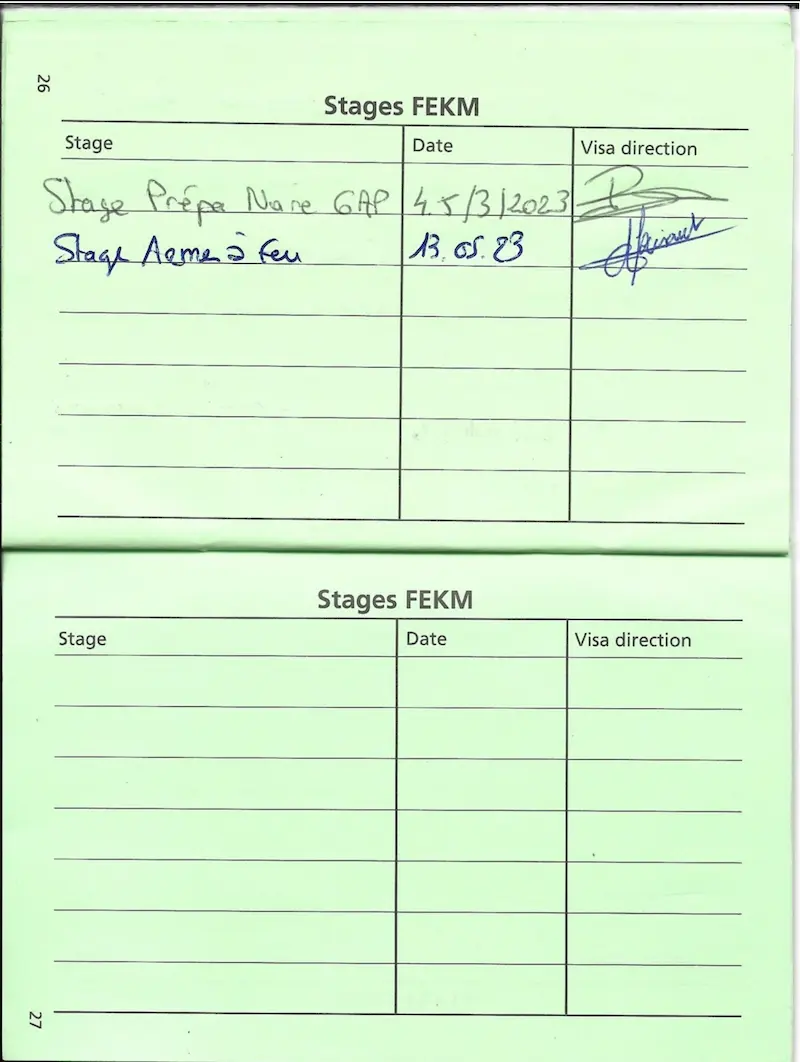 26
Stages FEKM
Stage Date Visa direction
Stage Prépa Noire GAP 4.5/3/2023
Stage Arme à feu 13.05.23
Stages FEKM
Stage Date Visa direction
27